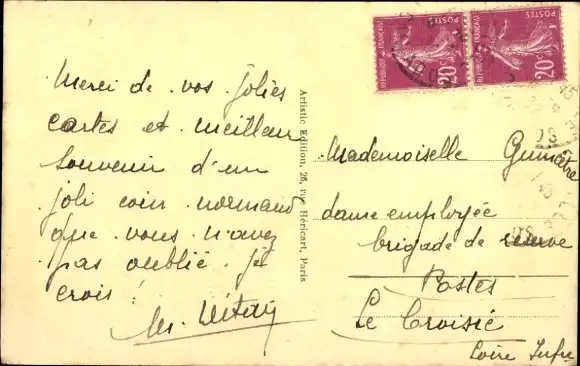 Merci de vos jolies
cartes et meilleur
souvenir d'un
joli coin normand
que vous n'avez
pas oublié je
crois !
Artistic Edition, 28, rue Héricart, Paris
REPUBLIQUE FRANÇAISE
POSTES
20c
REPUBLIQUE FRANÇAISE
POSTES
20c
Mademoiselle
dame employée
brigade de
Postes
Le Croisic
Loire Infre